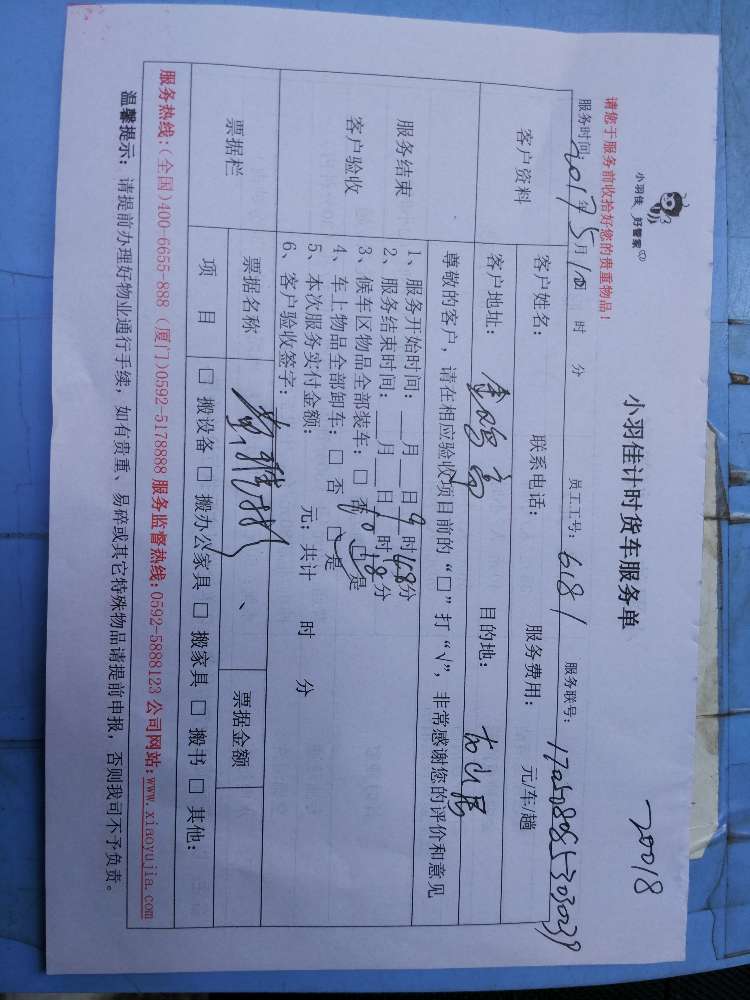 20018
小羽佳 好管家
小羽佳计时货车服务单
请您于服务前收拾好您的贵重物品!
服务时间: 2017年5月10日 时 分 员工工号: 6181 服务联号:
客户资料
客户姓名: 联系电话: 服务费用: 元/车/趟
客户地址: 目的地:
服务结束
客户验收
尊敬的客户,请在相应验收项目前的“□”打“√”,非常感谢您的评价和意见
1、服务开始时间:___月___日 9 时 48分
2、服务结束时间:___月___日 时 分
3、候车区物品全部装车:□ 否 □ 是
4、车上物品全部卸车:□ 否 □ 是
5、本次服务实付金额: 元;共计 时 分
6、客户验收签字:
票据栏
票据名称 、 票据金额
项 目 □ 搬设备 □ 搬办公家具 □ 搬家具 □ 搬书 □ 其他:
服务热线:(全国)400-6655-888 (厦门)0592-5178888 服务监督热线:0592-5888123 公司网站:www.xiaoyujia.com
温馨提示:请提前办理好物业通行手续,如有贵重、易碎或其它特殊物品请提前申报,否则我司不予负责。